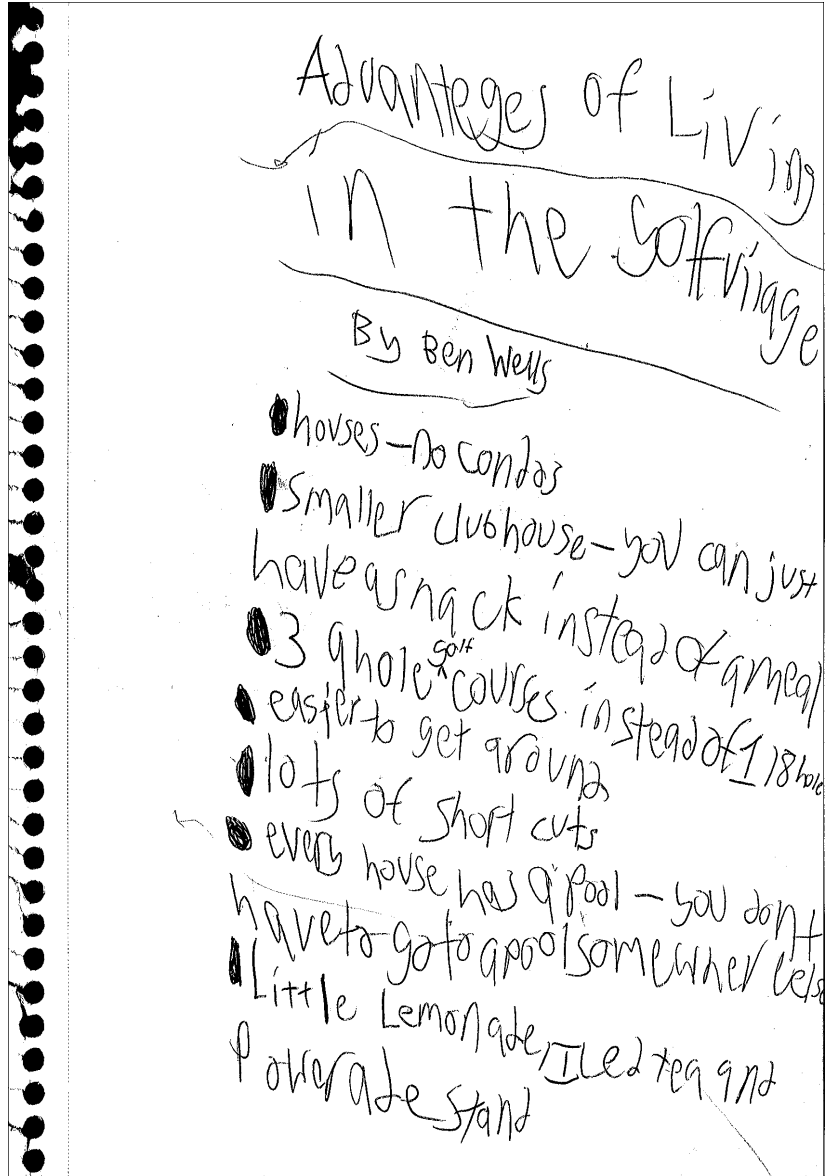 Advanteges of Living
in the golfvillage
By Ben Wells
houses - no condas
smaller clubhouse - you can just
have a snack instead of a meal
3 9 hole golf courses instead of 1 18 hole
easier to get around
lots of short cuts
every house has a pool - you dont
have to go to a pool somewher eelse
Little Lemonade, Iced tea and
Powerade stand